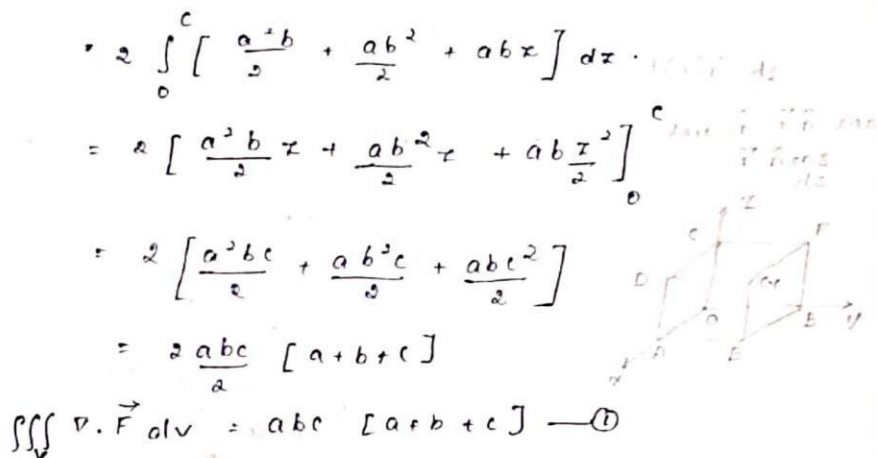 = 2 ∫₀ᶜ [ a²b/2 + ab²/2 + abz ] dz .
= 2 [ a²b/2 z + ab²/2 z + ab z²/2 ]₀ᶜ
= 2 [ a²bc/2 + ab²c/2 + abc²/2 ]
= 2 abc/2 [ a + b + c ]
∭ᵥ ∇ . F⃗ dv = abc [ a + b + c ] — ①
Z
C
F
D
G
O
B
y
A
E
x